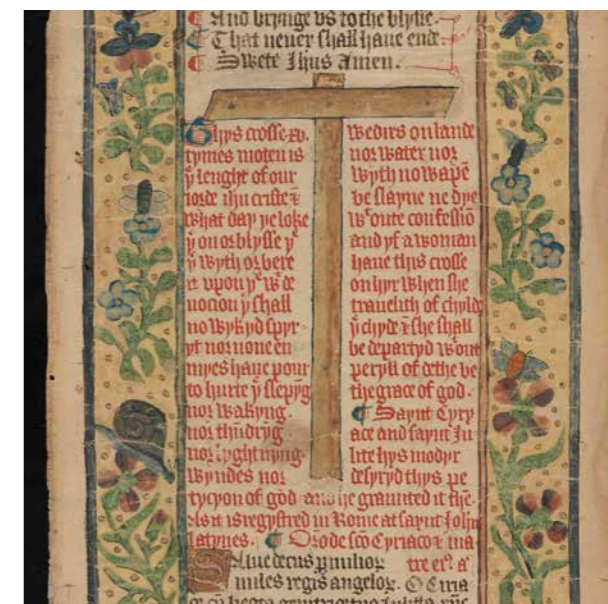 And brynge vs to the blysse
That neuer shall haue ende
Swete Jhūs Amen.
Thys crosse .xv.
tymes moten is
yͤ lenght of our
lorde ihū criste &
What day ye loke
yͤ on or blysse yͤ
yͤ wyth or bere
it vpon yͧ wͭ de
uocion yͤ shall
no wykyd spyr
yt nor none en
myes haue pour
to hurte yͤ slepyg
nor wakyng
nor thūdryg
nor lyghtnyng
wyndes nor
wedirs on lande
nor water nor
wyth no wapē
be slayne ne dye
wͭoute confessiō
and yf a woman
haue thys crosse
on hyr when she
trauelith of chylde
yͤ chyde & she shall
be departyd wͭ out
peryll of dethe be
the grace of god.
Saynt Cyry
ace and saynt Ju
lite hys modyr
desyryd thys pe
tycyon of god and he graunted it thē
Als it is regystred in Rome at saynt John
latynes. Oro de scō Cyriaco & ma
Salue decus puulior tre eiꝰ. aͣ
miles regis angeloꝝ. O Ciria